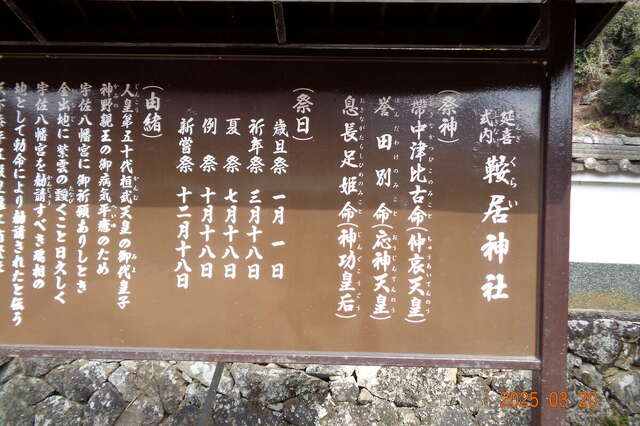 延喜式内 鞍居神社
(祭神)
帯中津比古命(仲哀天皇)
誉田別命(応神天皇)
息長足姫命(神功皇后)
(祭日)
歳旦祭 一月一日
祈年祭 三月十八日
夏祭 七月十八日
例祭 十月十八日
新嘗祭 十二月十八日
(由緒)
人皇第五十代桓武天皇の御代皇子
神野親王の御病気平癒のため
宇佐八幡宮に御祈願ありしとき
金出地に紫雲の靉くこと日久しく
宇佐八幡宮を勧請すべき瑞相の
地として勅命により勧請されたと伝う
2025 03 20